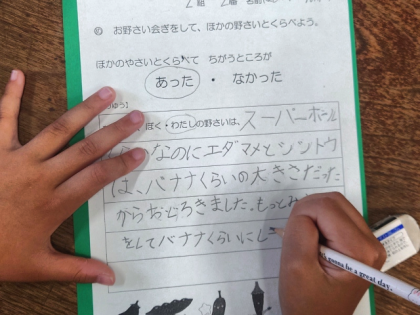 お野さい会ぎをして、ほかの野さいとくらべよう。
ほかのやさいとくらべて ちがうところが
あった ・ なかった
ぼく・わたしの野さいは、スーパーボール
なのにエダマメと
は、バナナくらいの大きさだった
からおどろきました。もっと
をしてバナナくらいにし